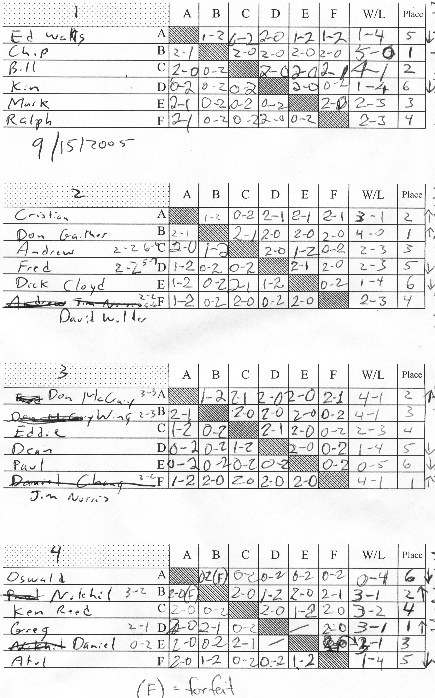 1 A B C D E F W/L Place
Ed Watts A 1-2 0-2 2-0 1-2 1-2 1-4 5 ↓
Chip B 2-1 2-0 2-0 2-0 2-0 5-0 1
Bill C 2-0 0-2 2-0 2-0 2-1 4-1 2
Kim D 0-2 0-2 0-2 2-0 0-2 1-4 6 ↓
Mark E 2-1 0-2 0-2 0-2 2-0 2-3 3
Ralph F 2-1 0-2 0-2 2-0 0-2 2-3 4
9/15/2005
2 A B C D E F W/L Place
Cristian A 1-2 0-2 2-1 2-1 2-1 3-1 2 ↑
Don Gaither B 2-1 2-1 2-0 2-0 2-0 4-0 1 ↑
Andrew 2-2 C 2-0 1-2 2-0 1-2 0-2 2-3 3
Fred 2-2 D 1-2 0-2 0-2 2-1 2-0 2-3 5 ↓
Dick Cloyd E 1-2 0-2 2-1 1-2 0-2 1-4 6 ↓
F 1-2 0-2 2-0 0-2 2-0 2-3 4
David Wilder
3 A B C D E F W/L Place
Don McCray 3-3 A 1-2 2-1 2-0 2-0 2-1 4-1 2 ↑
Wing 2-3 B 2-1 2-0 2-0 2-0 0-2 4-1 3
Eddie C 1-2 0-2 2-1 2-0 0-2 2-3 4
Dean D 0-2 0-2 1-2 2-0 0-2 1-4 5 ↓
Paul E 0-2 0-2 0-2 0-2 0-2 0-5 6 ↓
F 1-2 2-0 2-0 2-0 2-0 4-1 1 ↑
Jim Norris
4 A B C D E F W/L Place
Oswald A 0-2(F) 0-2 0-2 0-2 0-2 0-4 6 ↓
3-2 B 2-0(F) 2-0 1-2 2-0 2-1 3-1 2 ↑
Ken Reed C 2-0 0-2 2-0 1-2 2-0 3-2 4
Greg 2-1 D 2-0 2-1 0-2 2-0 3-1 1 ↑
Daniel 0-2 E 2-0 0-2 2-1 3-1 3
Atul F 2-0 1-2 0-2 0-2 1-2 1-4 5 ↓
(F) = forfeit